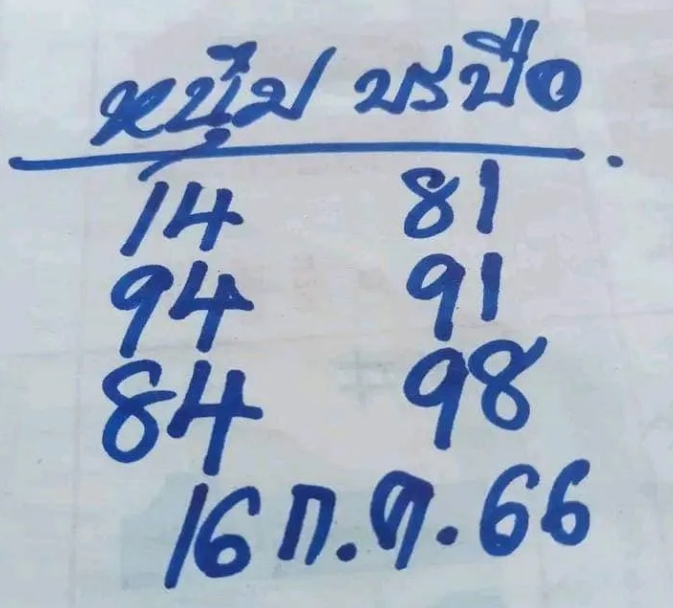 หนุ่ม บรบือ
14 81
94 91
84 98
16 ก.ค. 66